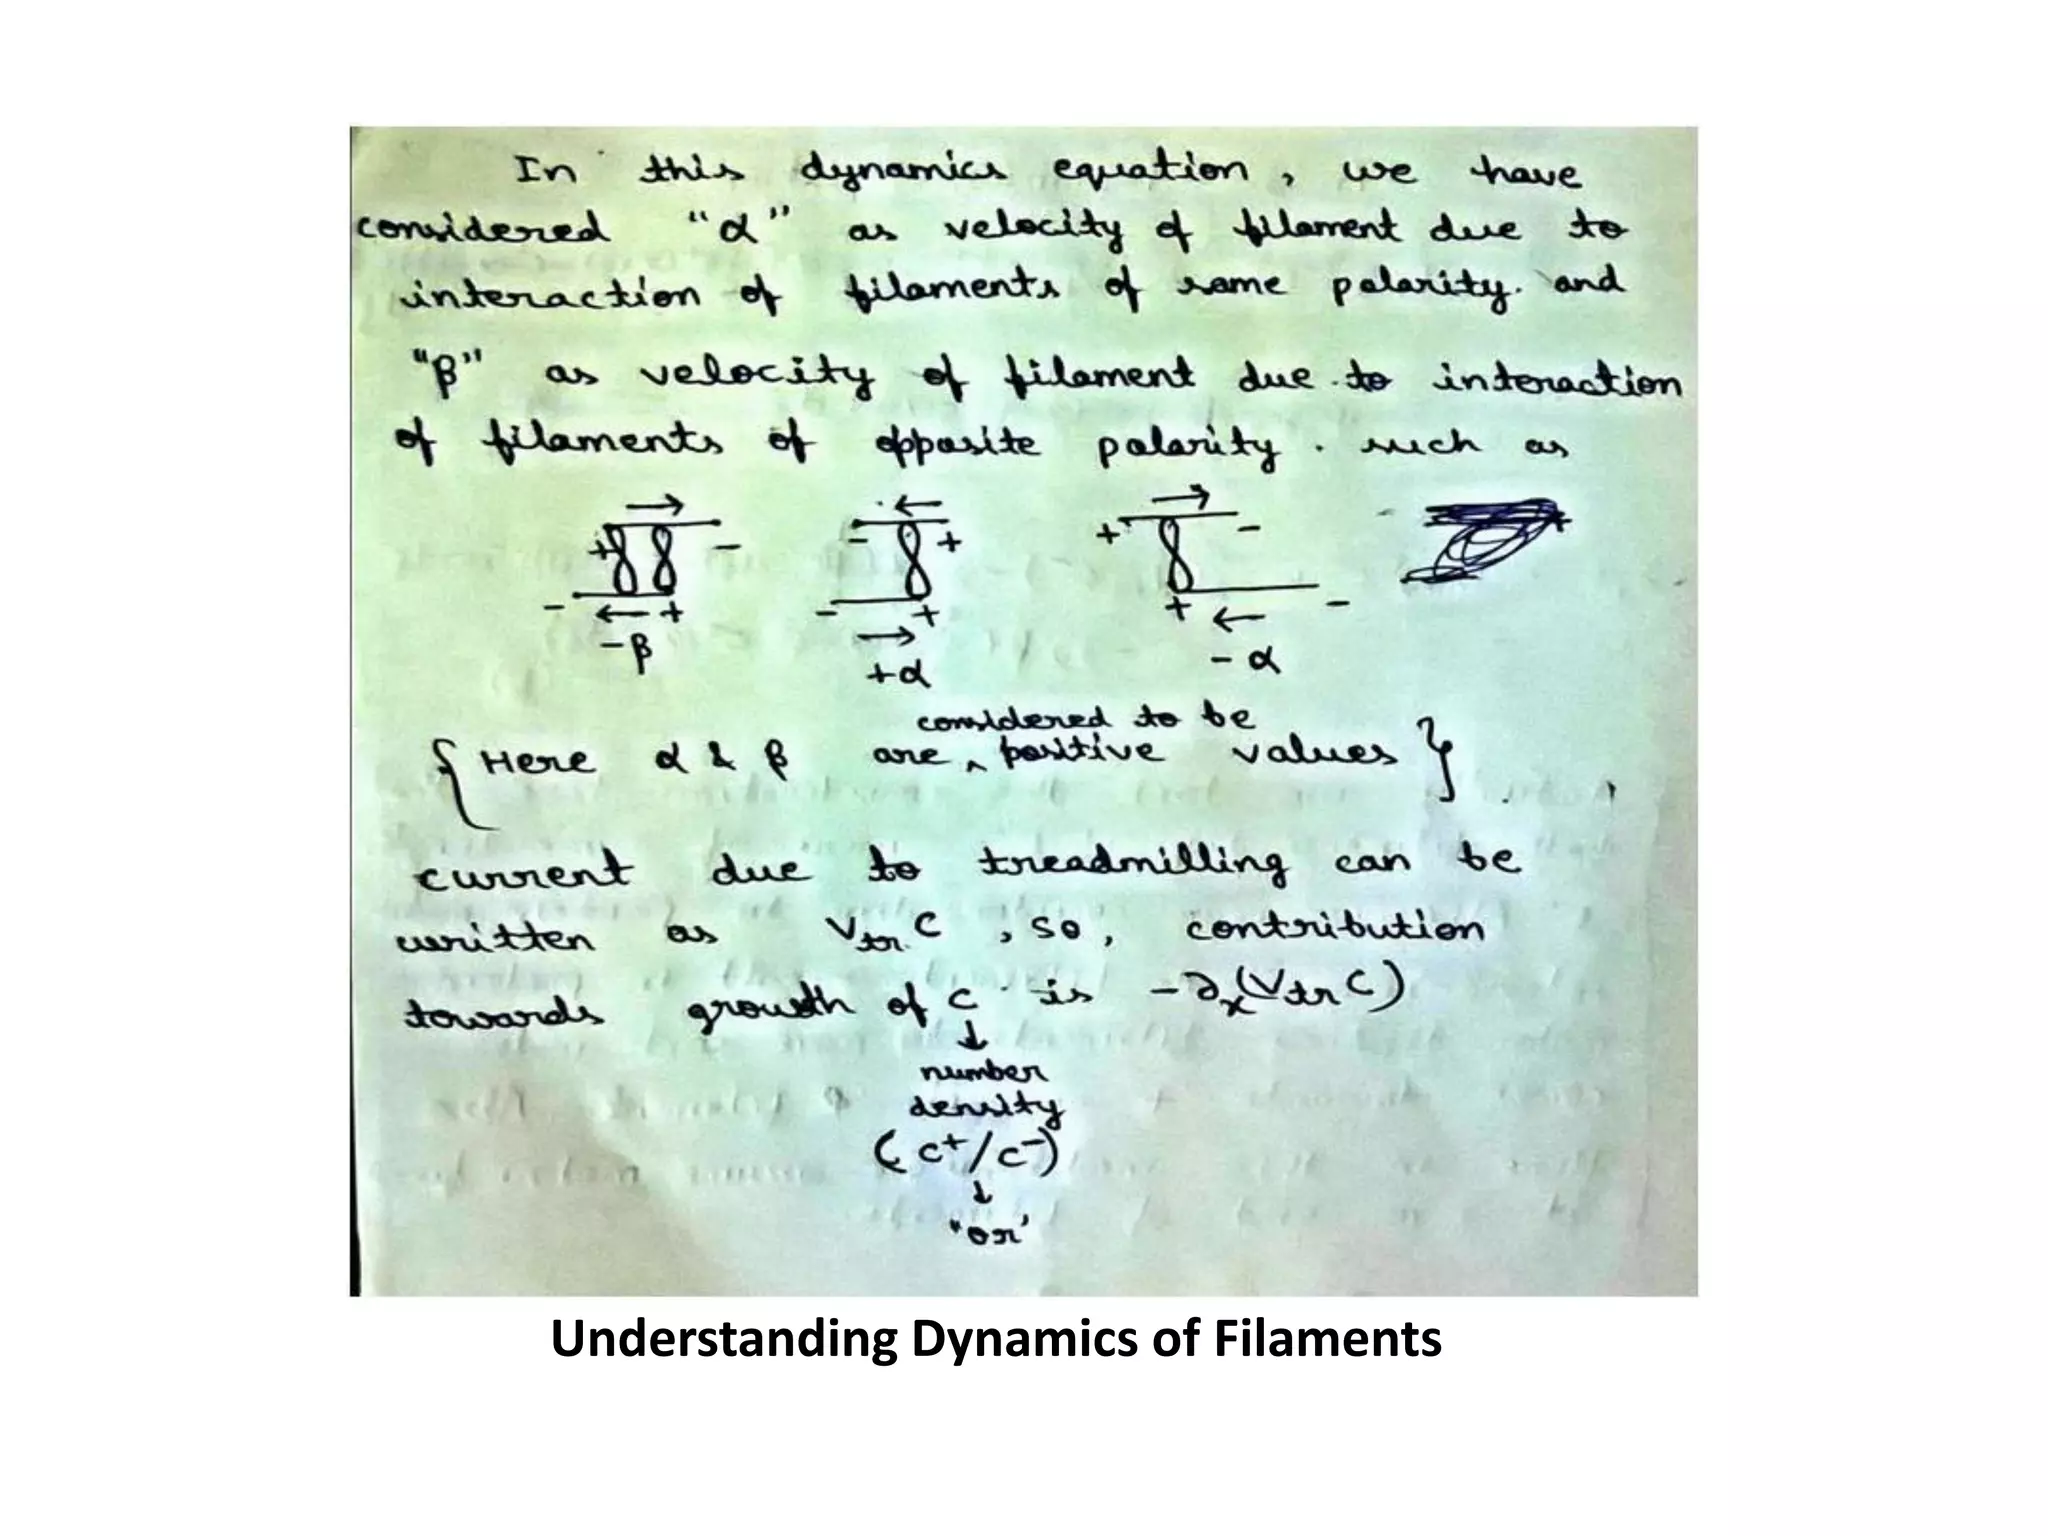 In this dynamics equation, we have
considered "α" as velocity of filament due to
interaction of filaments of same polarity. and
"β" as velocity of filament due to interaction
of filaments of opposite polarity. such as
→ ← →
+ - - + + -
- ← + - + + ← -
-β → -α
+α
considered to be
{Here α & β are ‸ positive values}
current due to treadmilling can be
written as Vtr C, so, contribution
towards growth of C is -∂x(Vtr C)
↓
number
density
(C⁺/C⁻)
↓
"or'
Understanding Dynamics of Filaments